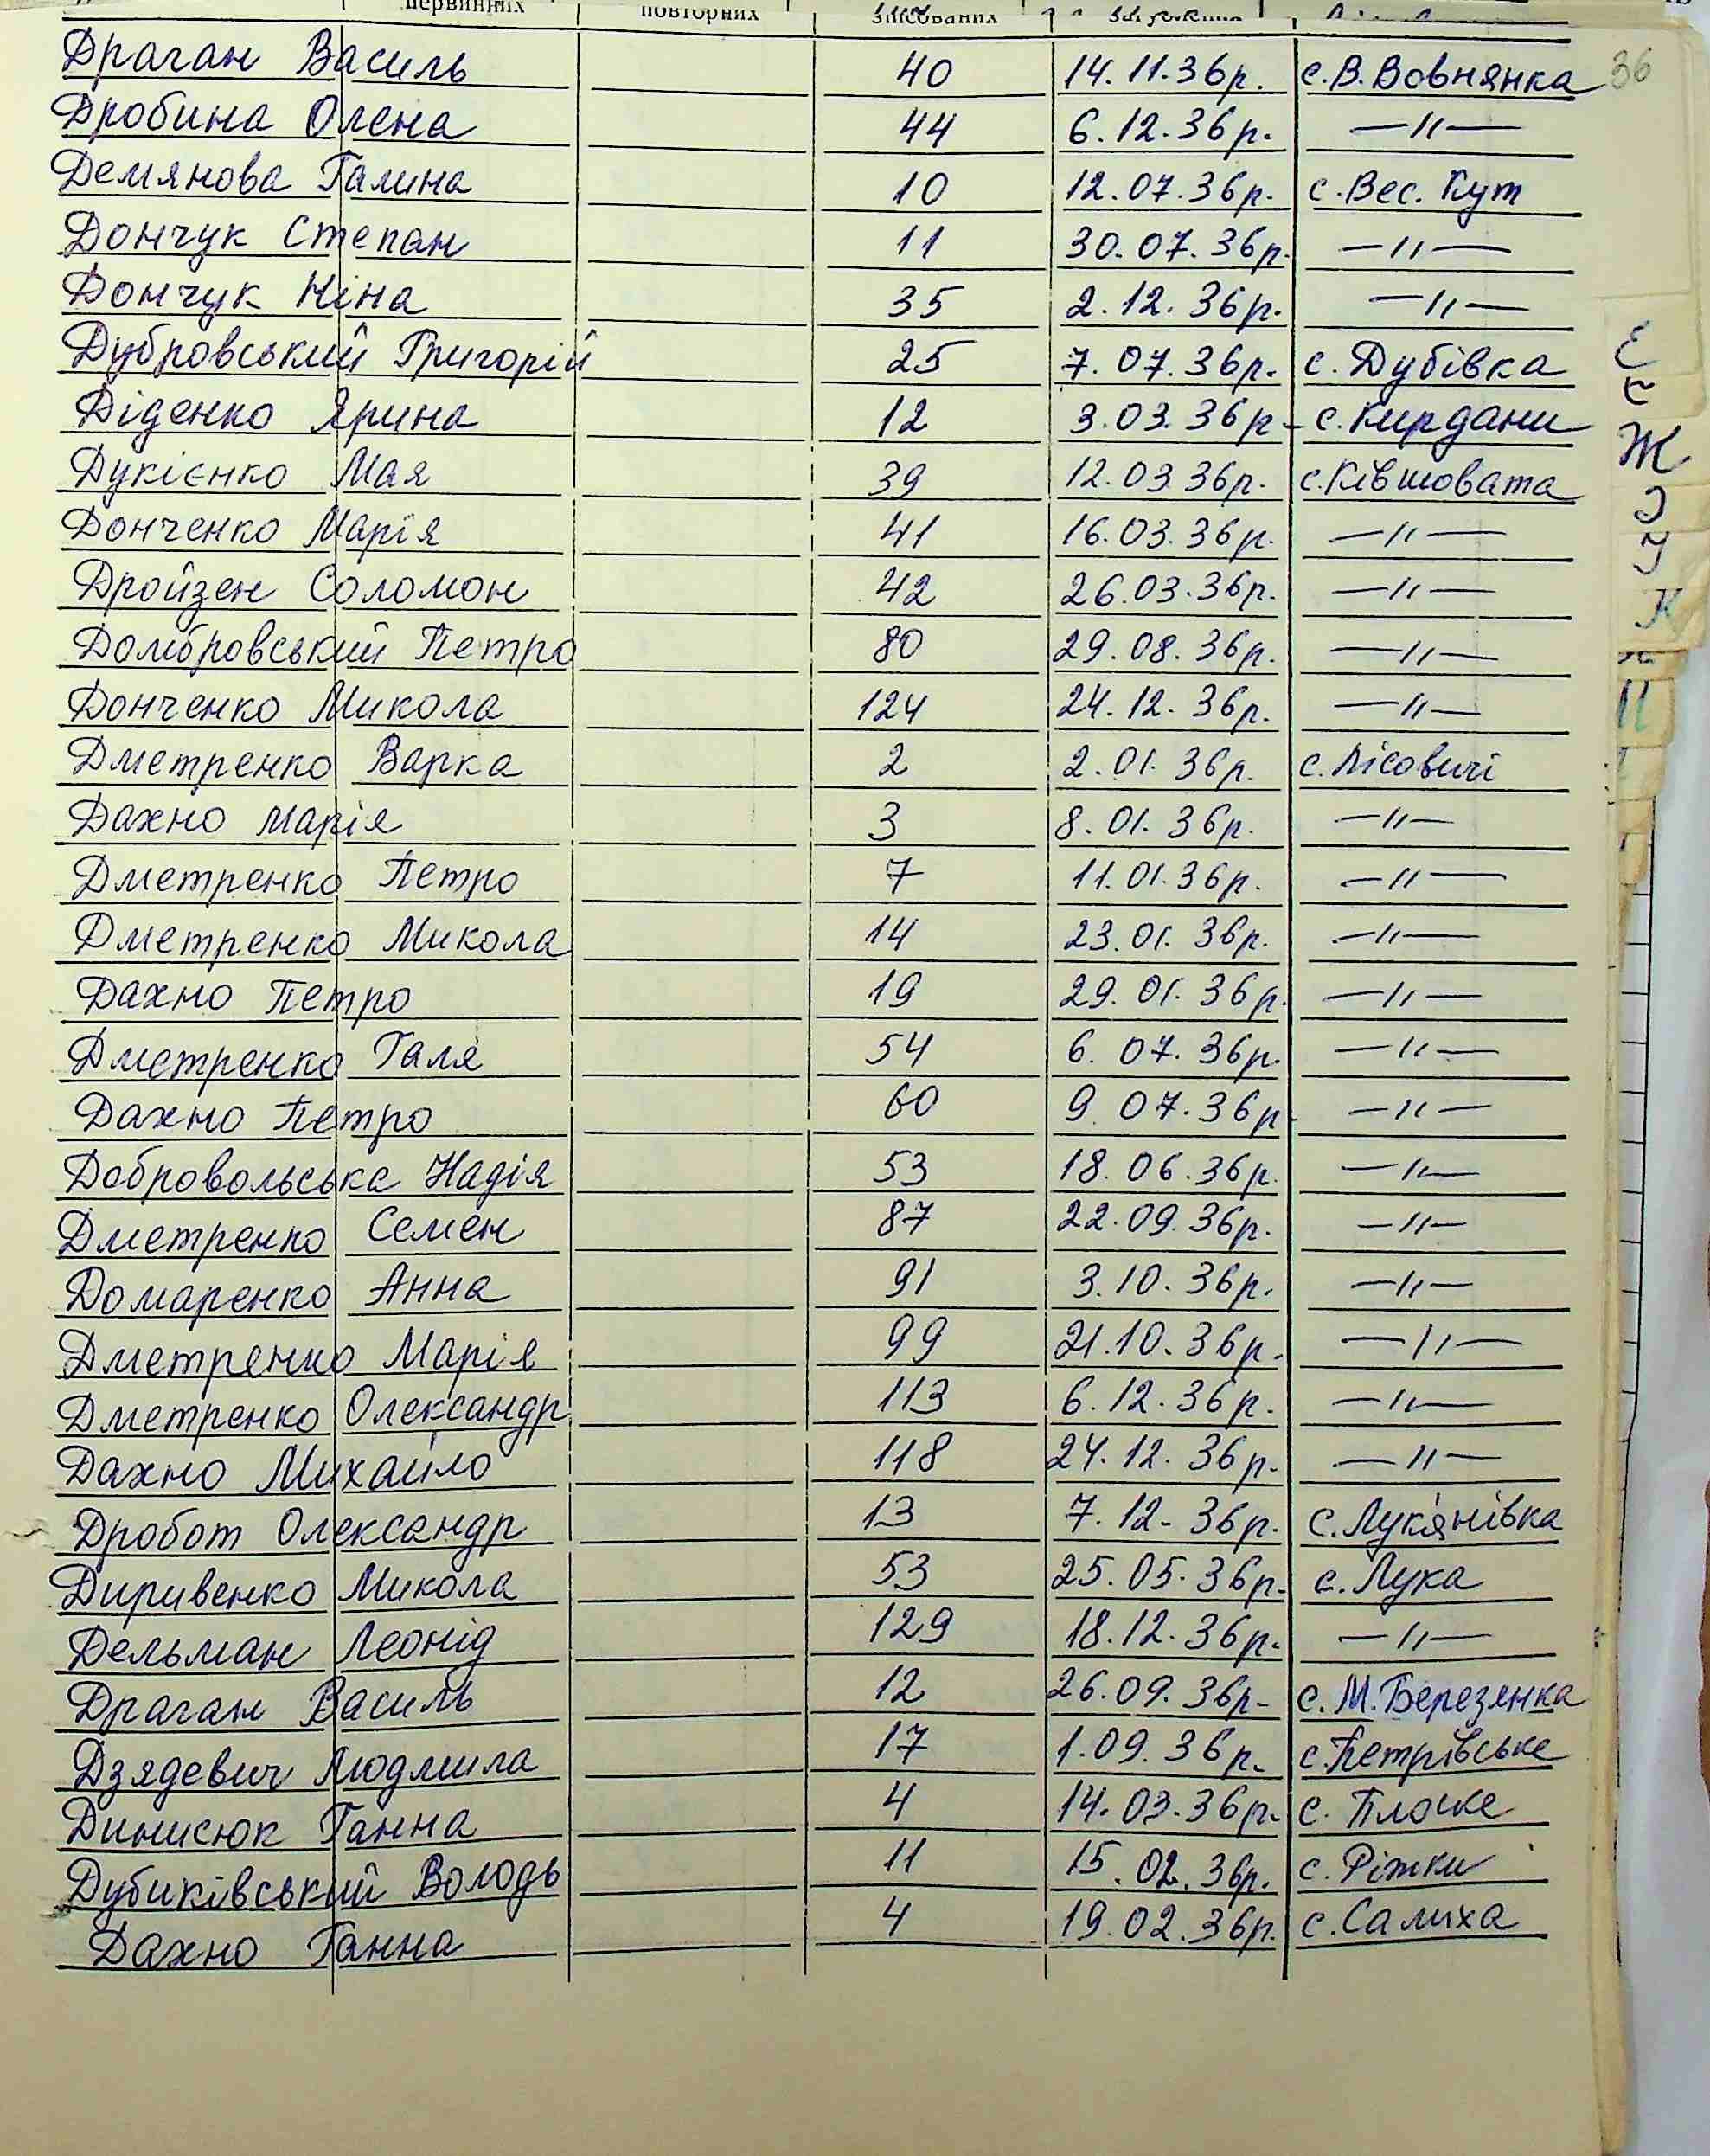 первинних повторних
Драган Василь 40 14.11.36р. с.В.Вовнянка 36
Дробина Олена 44 6.12.36р. —〃—
Демянова Галина 10 12.07.36р. с.Вес. Кут
Дончук Степан 11 30.07.36р. —〃—
Дончук Ніна 35 2.12.36р. —〃—
Дубровський Григорій 25 7.07.36р. с. Дубівка
Діденко Ярина 12 3.03.36р. с.Кирдани
Дукієнко Мая 39 12.03.36р. с.Ківшовата
Донченко Марія 41 16.03.36р. —〃—
Дройзен Соломон 42 26.03.36р. —〃—
Домбровський Петро 80 29.08.36р. —〃—
Донченко Микола 124 24.12.36р. —〃—
Дметренко Варка 2 2.01.36р. с.Лісовичі
Дахно Марія 3 8.01.36р. —〃—
Дметренко Петро 7 11.01.36р. —〃—
Дметренко Микола 14 23.01.36р. —〃—
Дахно Петро 19 29.01.36р. —〃—
Дметренко Галя 54 6.07.36р. —〃—
Дахно Петро 60 9.07.36р. —〃—
Добровольська Надія 53 18.06.36р. —〃—
Дметренко Семен 87 22.09.36р. —〃—
Домаренко Анна 91 3.10.36р. —〃—
Дметренко Марія 99 21.10.36р. —〃—
Дметренко Олександр 113 6.12.36р. —〃—
Дахно Михайло 118 24.12.36р. —〃—
Дробот Олександр 13 7.12.36р. с.Лук'янівка
Диривенко Микола 53 25.05.36р. с.Лука
Дельман Леонід 129 18.12.36р. —〃—
Драган Василь 12 26.09.36р. с.М.Березянка
Дзядевич Людмила 17 1.09.36р. с.Петрівське
Динисюк Ганна 4 14.03.36р. с. Плоске
Дубиківський Володь 11 15.02.36р. с. Ріжки
Дахно Ганна 4 19.02.36р. с.Салиха
Е
Є
Ж
З
І
К